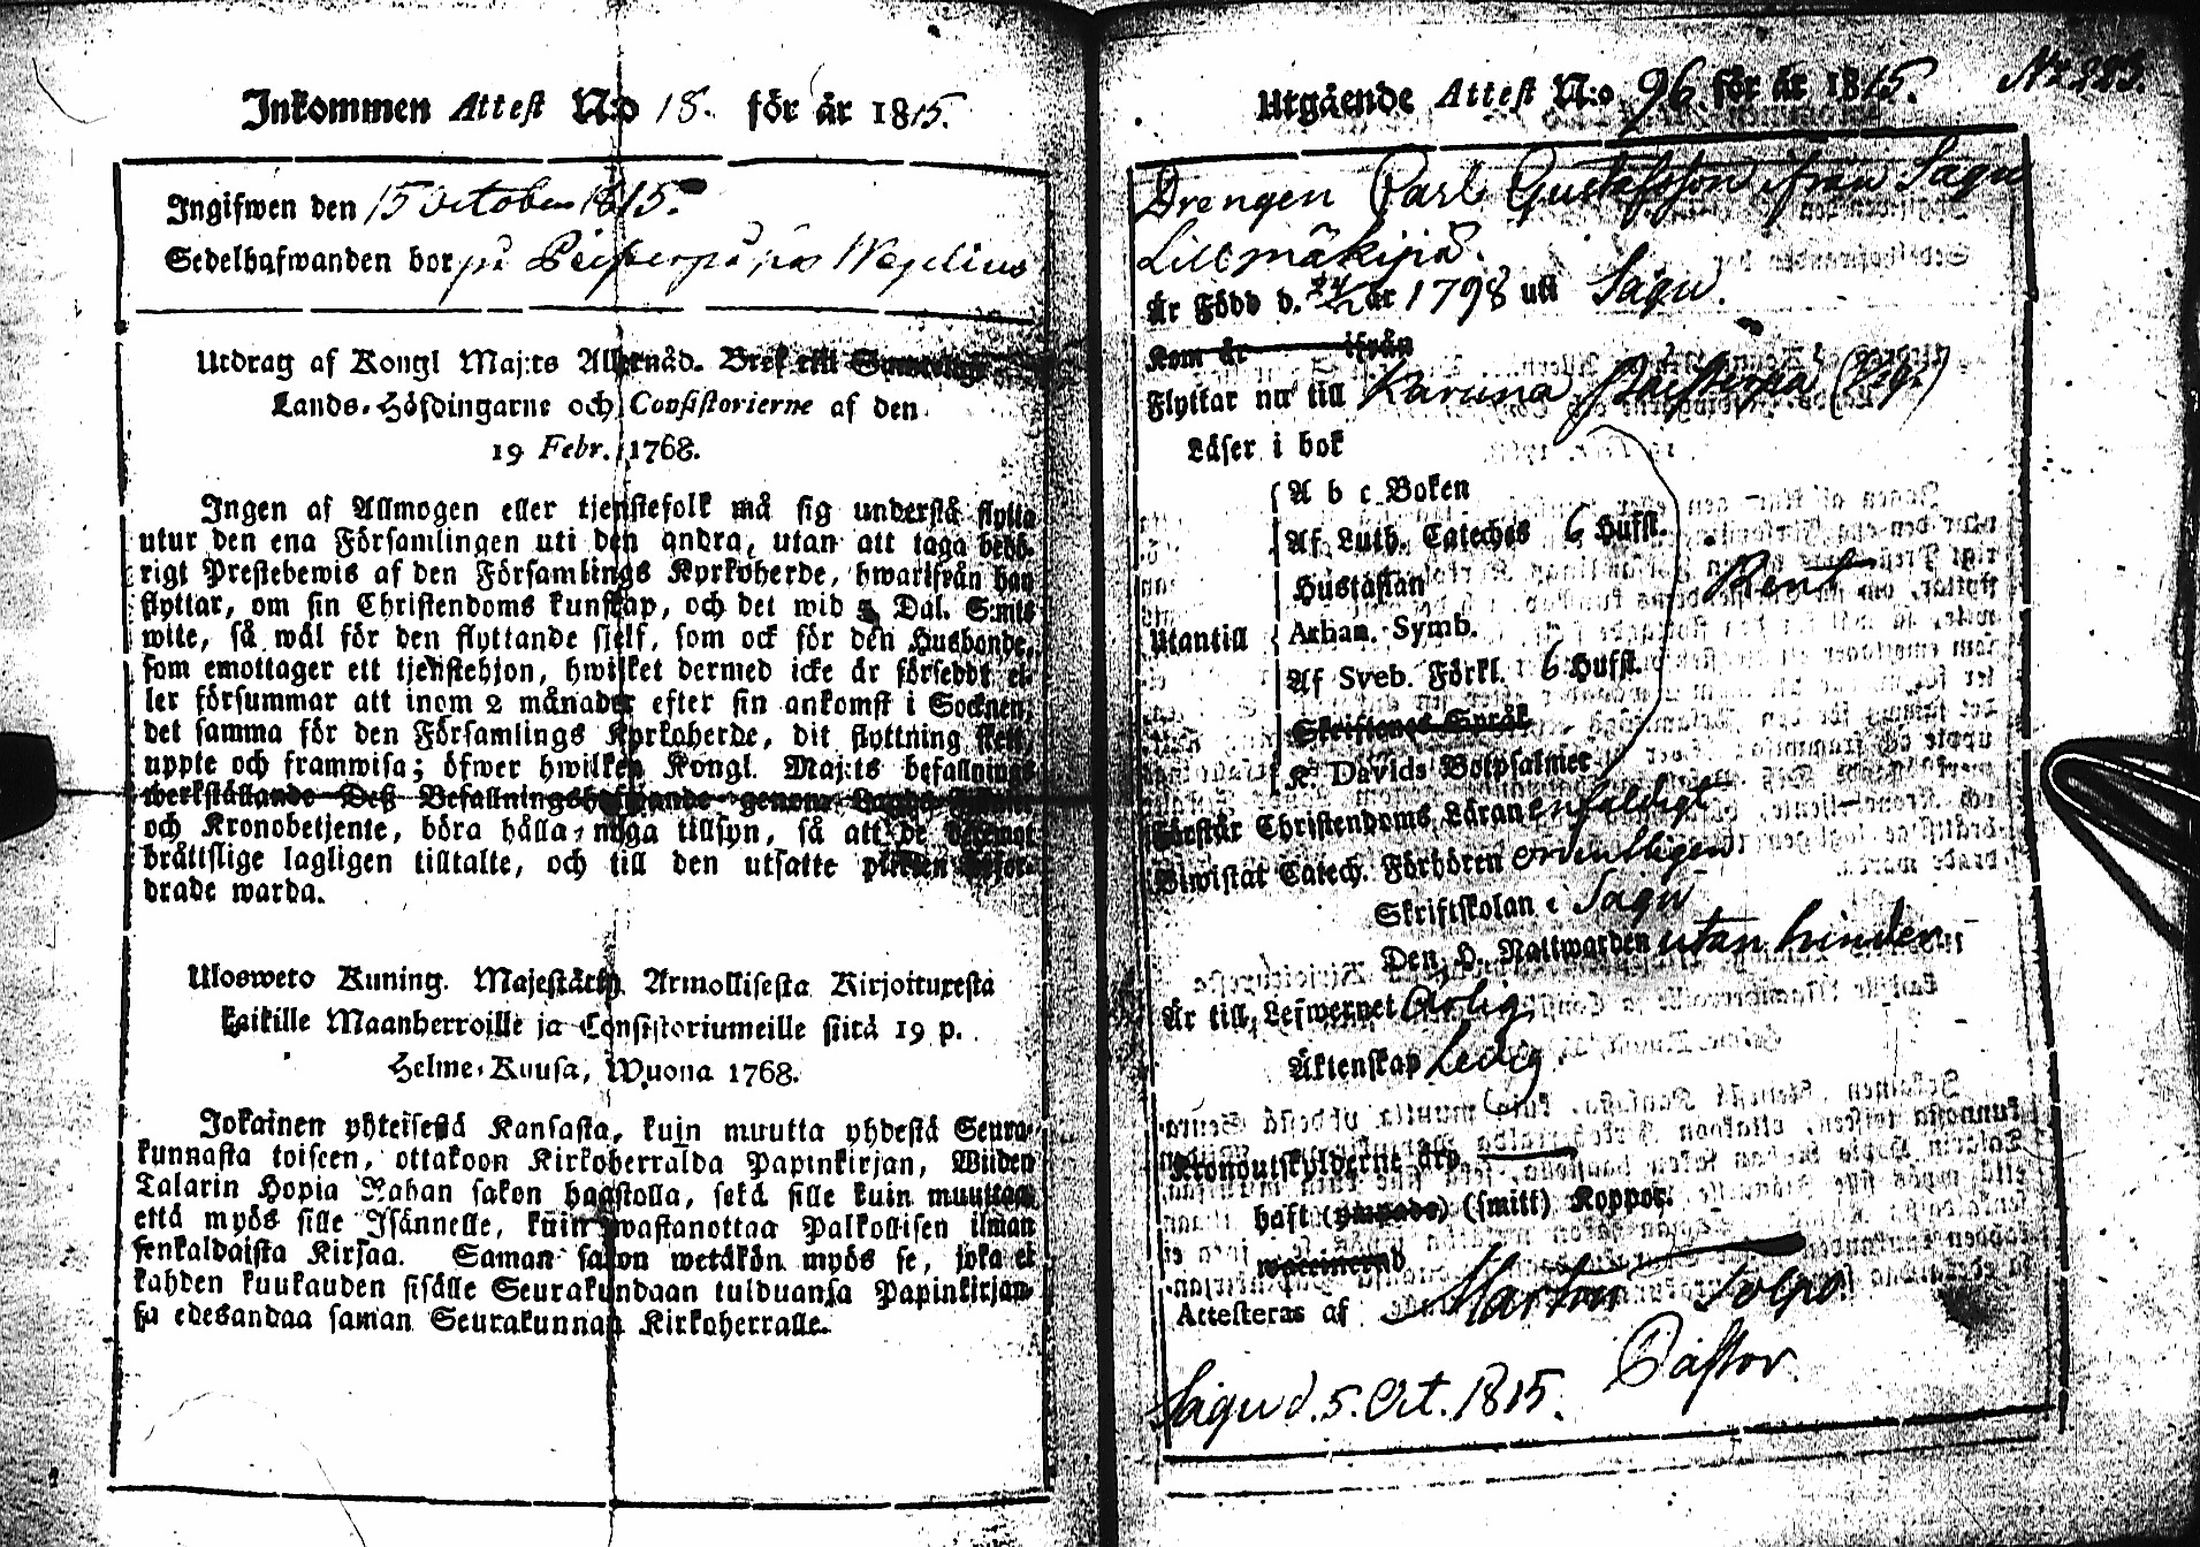 Inkommen Attest N:o 18. för år 1815.
Ingifwen den 15 October 1815.
Sedelhafwanden bor på Peisterpä hos Wegelius
Utdrag af Kongl Maj:ts Allernåd. Bref till
Lands-Höfdingarne och Consistorierne af den
19 Febr. 1768.
Ingen af Allmogen eller tjenstefolk må sig understå flytta
utur den ena Församlingen uti den andra, utan att taga behö-
rigt Prestebewis af den Församlings Kyrkoherde, hwarifrån han
flyttar, om sin Christendoms kunskap, och det wid 5 Dal. S:mts
wite, så wäl för den flyttande sjelf, som ock för den Husbonde,
som emottager ett tjenstehjon, hwilket dermed icke är försedt el-
ler försummar att inom 2 månader efter sin ankomst i Socknen,
det samma för den Församlings Kyrkoherde, dit flyttning skett,
uppte och framwisa; öfwer hwilken Kongl. Maj:ts befallnings
werkställande Deß Befallningshafwande genom
och Kronobetjente, böra hålla noga tillsyn, så att de deremot
bråttslige lagligen tilltalte, och till den utsatte plikten befor-
drade warda.
Ulosweto Kuning. Majestätin Armollisesta Kirjoituresta
kaikille Maanherroille ja Consistoriumeille siitä 19 p.
Helme-Kuusa, Wuona 1768.
Jokainen yhteisestä Kansasta, kuin muutta yhdestä Seura-
kunnasta toiseen, ottakoon Kirkoherralda Papinkirjan, Wiiden
Talarin Hopia Rahan sakon haastolla, sekä sille kuin muuttaa
että myös sille Isännelle, kuin wastanottaa Palkollisen ilman
senkaldaista Kirjaa. Saman sakon wetäkön myös se, joka ei
kahden kuukauden sisälle Seurakundaan tulduansa Papinkirjan-
sa edesandaa saman Seurakunnan Kirkoherralle.
Utgående Attest N:o 96 för år 1815.
Nr 223.
Drengen Carl Gustafsson ifrån Sagu
Lillmäkijlä.
Är Född d. 24 år 1798 uti Sagu.
Kom år ifrån
Flyttar nu till Karuna Peisterpä
Läser i bok
A b c Boken
Af Luth. Cateches 6 Hufst.
Hustaflan
Rent
Utantill
Athan. Symb.
Af Sveb. Förkl. 6 Hufst.
Skriftenes Språk
K. Davids Botpsalmer
Förstår Christendoms Läran enfaldigt
Biwistat Catech. Förhören ordentligen
Skriftskolan i Sagu
Den H. Nattwarden utan hinder
Är till Lefwernet Ärlig
Äktenskap Ledig
Kronoutskylderne
haft (ympade) (smitt) Koppor.
waccinerad
Attesteras af Martin Tolpo
Pastor
Sagu d. 5. Oct. 1815.